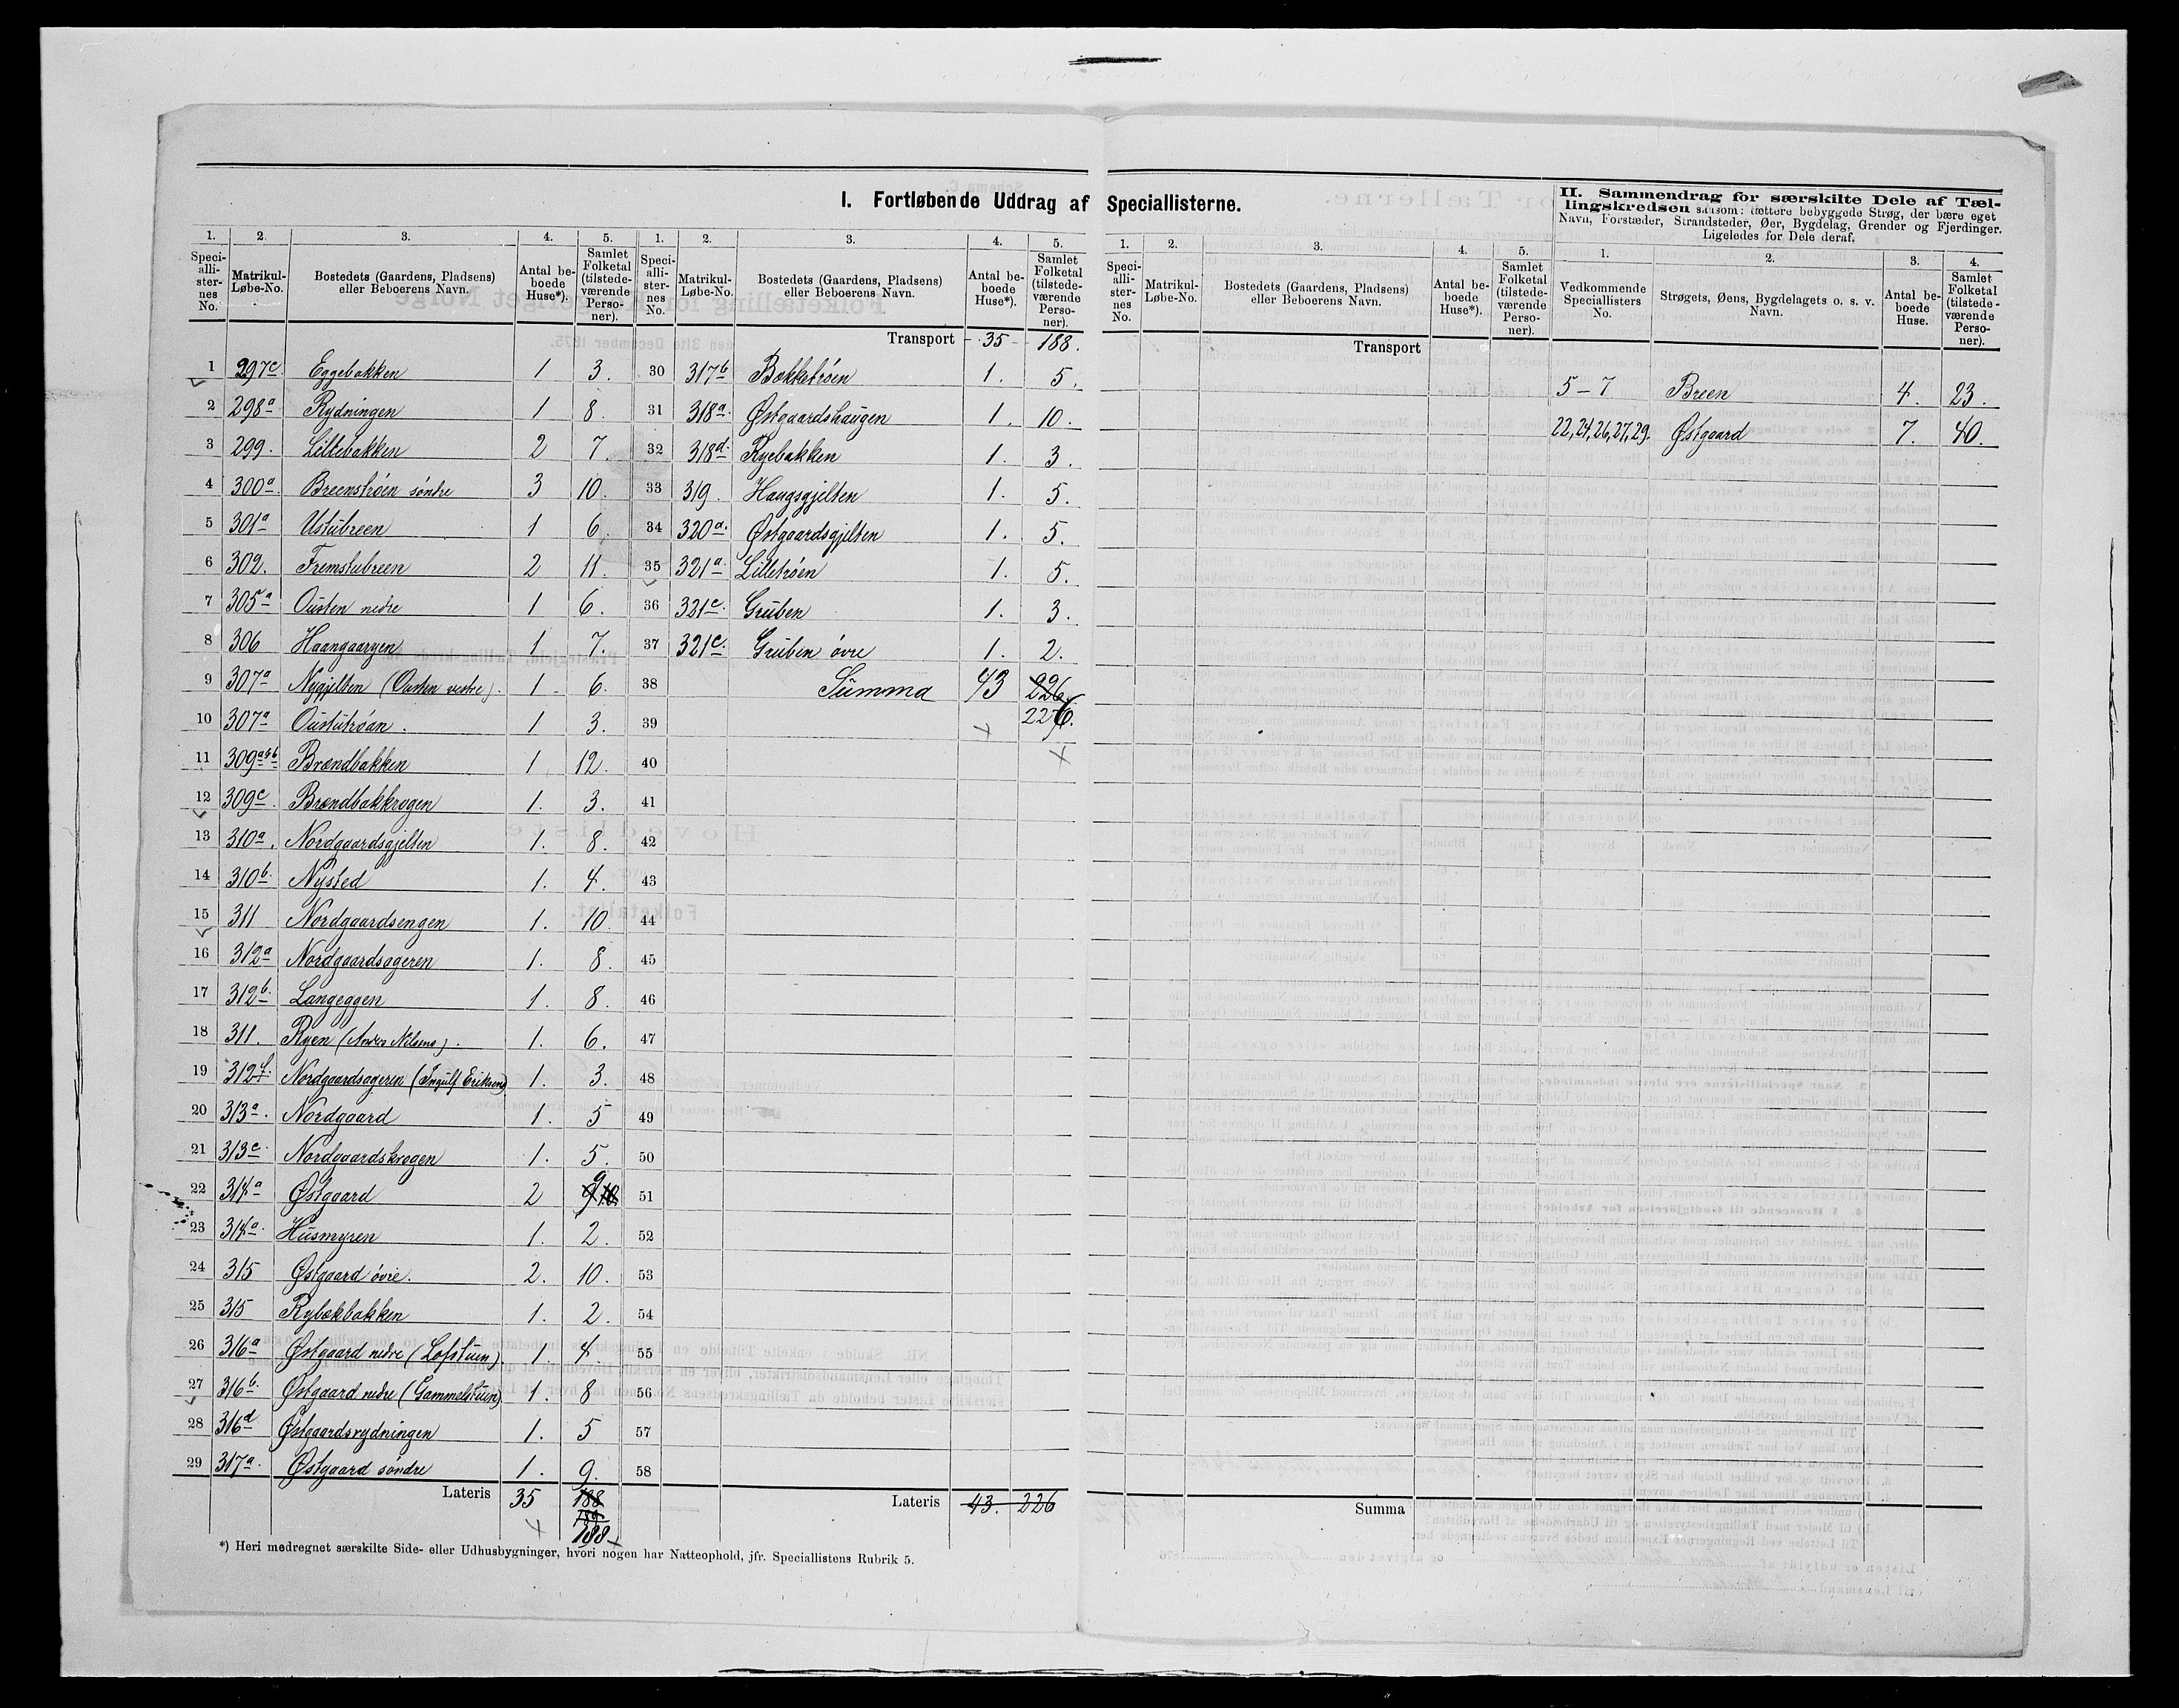 I. Fortløbende Uddrag af Speciallisterne.
II. Sammendrag for særskilte Dele af Tæl-
lingskredsen saasom: tættere bebyggede Strøg, der bære eget
Navn, Forstæder, Strandsteder, Øer, Bygdelag, Grender og Fjerdinger.
Ligeledes for Dele deraf.
1. 2. 3. 4. 5.
Speciallisternes No. Matrikul-Løbe-No. Bostedets (Gaardens, Pladsens) eller Beboerens Navn. Antal beboede Huse*). Samlet Folketal (tilstedeværende Personer).
1 297c. Eggebakken 1 3.
2 298a Rydningen 1 8.
3 299. Lillebakken 2 7.
4 300a Breenstrøen søndre 3 10.
5 301a Ustubreen 1 6.
6 302. Fremstubreen 2 11.
7 305a Ousten nedre 1 6.
8 306 Haangaaryen 1 7.
9 307a Nygjelten (Ousten vestre). 1 6.
10 307a Oustutrøan. 1 3.
11 309a&b Brændbakken 1 12.
12 309c. Brændbakkrogen 1. 3.
13 310a. Nordgaardsgjelten 1. 8.
14 310b. Nysted 1. 4.
15 311 Nordgaardsengen 1. 10.
16 312a Nordgaardsageren 1. 8.
17 312b. Langeggen 1. 8.
18 311. Ryen (Anders Nilsens). 1. 6.
19 312f. Nordgaardsageren (Ingulf Eriksen) 1. 3.
20 313a. Nordgaard 1. 5
21 313c. Nordgaardskrogen 1. 5.
22 314a Østgaard 2 9 10. 9
23 314a. Husmyren 1. 2.
24 315 Østgaard øvre. 2. 10.
25 315 Rybækbakken 1. 2.
26 316a Østgaard nedre (Lofstuen). 1. 4.
27 316b. Østgaard nedre (Gammelstuen) 1. 8
28 316d Østgaardsrydningen 1. 5
29 317a. Østgaard søndre 1. 9.
Lateris 35 188
189
188
1. 2. 3. 4. 5.
Speciallisternes No. Matrikul-Løbe-No. Bostedets (Gaardens, Pladsens) eller Beboerens Navn. Antal beboede Huse*). Samlet Folketal (tilstedeværende Personer).
Transport 35 188.
30 317b Bækketrøen 1. 5.
31 318a. Østgaardshaugen 1. 10.
32 318d. Ryebakken 1. 3.
33 319. Haugsgjelten 1. 5.
34 320a. Østgaardsgjelten 1. 5.
35 321a. Lilletrøen 1. 5.
36 321c. Gruben 1. 3.
37 321c. Gruben øvre 1. 2.
38 Summa 43 226
39 226.
40
41
42
43
44
45
46
47
48
49
50
51
52
53
54
55
56
57
58
Lateris 43. 226
1. 2. 3. 4. 5.
Speciallisternes No. Matrikul-Løbe-No. Bostedets (Gaardens, Pladsens) eller Beboerens Navn. Antal beboede Huse*). Samlet Folketal (tilstedeværende Personer).
Transport
Summa
1. 2. 3. 4.
Vedkommende Speciallisters No. Strøgets, Øens, Bygdelagets o. s. v. Navn. Antal beboede Huse. Samlet Folketal (tilstedeværende Personer).
5-7 Breen 4. 23.
22, 24, 26, 27, 29. Østgaard 7. 40.
*) Heri medregnet særskilte Side- eller Udhusbygninger, hvori nogen har Natteophold, jfr. Speciallistens Rubrik 5.